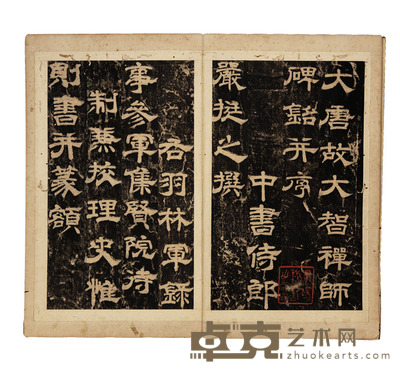 大唐故大智禪師
碑銘并序
中書侍郎
嚴挺之撰
右羽林軍錄
事參軍集賢院待
制兼挍理史惟
則書并篆額
卓克艺术网
zhuokearts.com